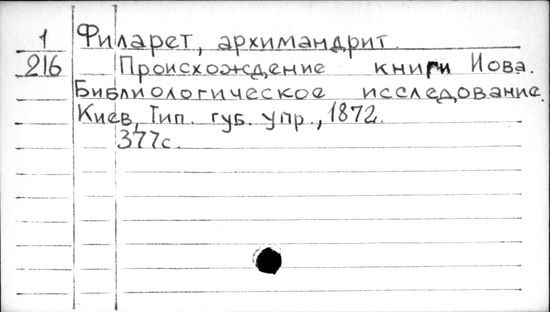 1 Филарет, архимандрит.
216 Происхождение книги Иова.
Библиологическое исследование.
Киев, Тип. губ. упр., 1872.
377с.